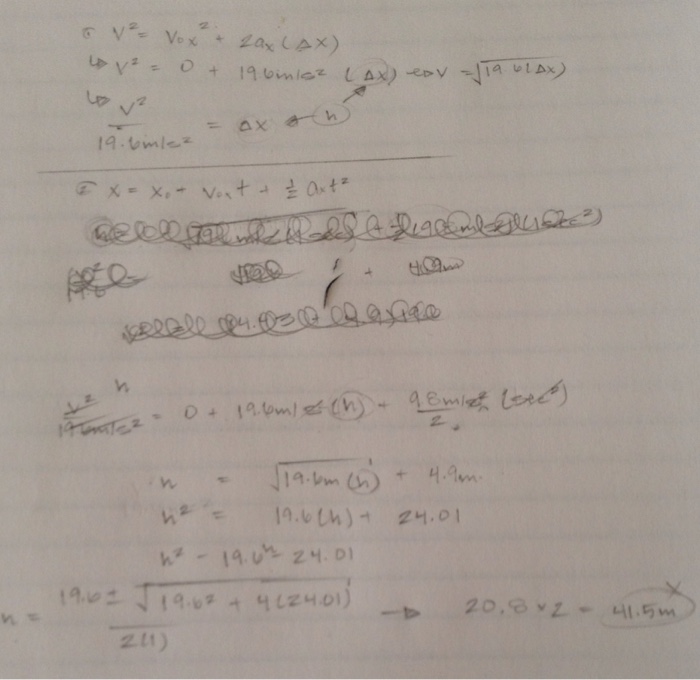 ① V² = V₀ₓ² + 2aₓ(Δx)
↳ V² = 0 + 19.6m/s² (Δx) → V = √19.6(Δx)
↳ V² / 19.6m/s² = Δx ← h
② x = x₀ + V₀ₓt + ½ aₓt²
V² / 19.6m/s² h = 0 + 19.6m/s² (h) + 9.8m/s² / 2 (sec²)
h = √19.6m(h) + 4.9m
h² = 19.6(h) + 24.01
h² - 19.6h - 24.01
h = 19.6 ± √19.6² + 4(24.01) / 2(1) → 20.8 × 2 = 41.5m